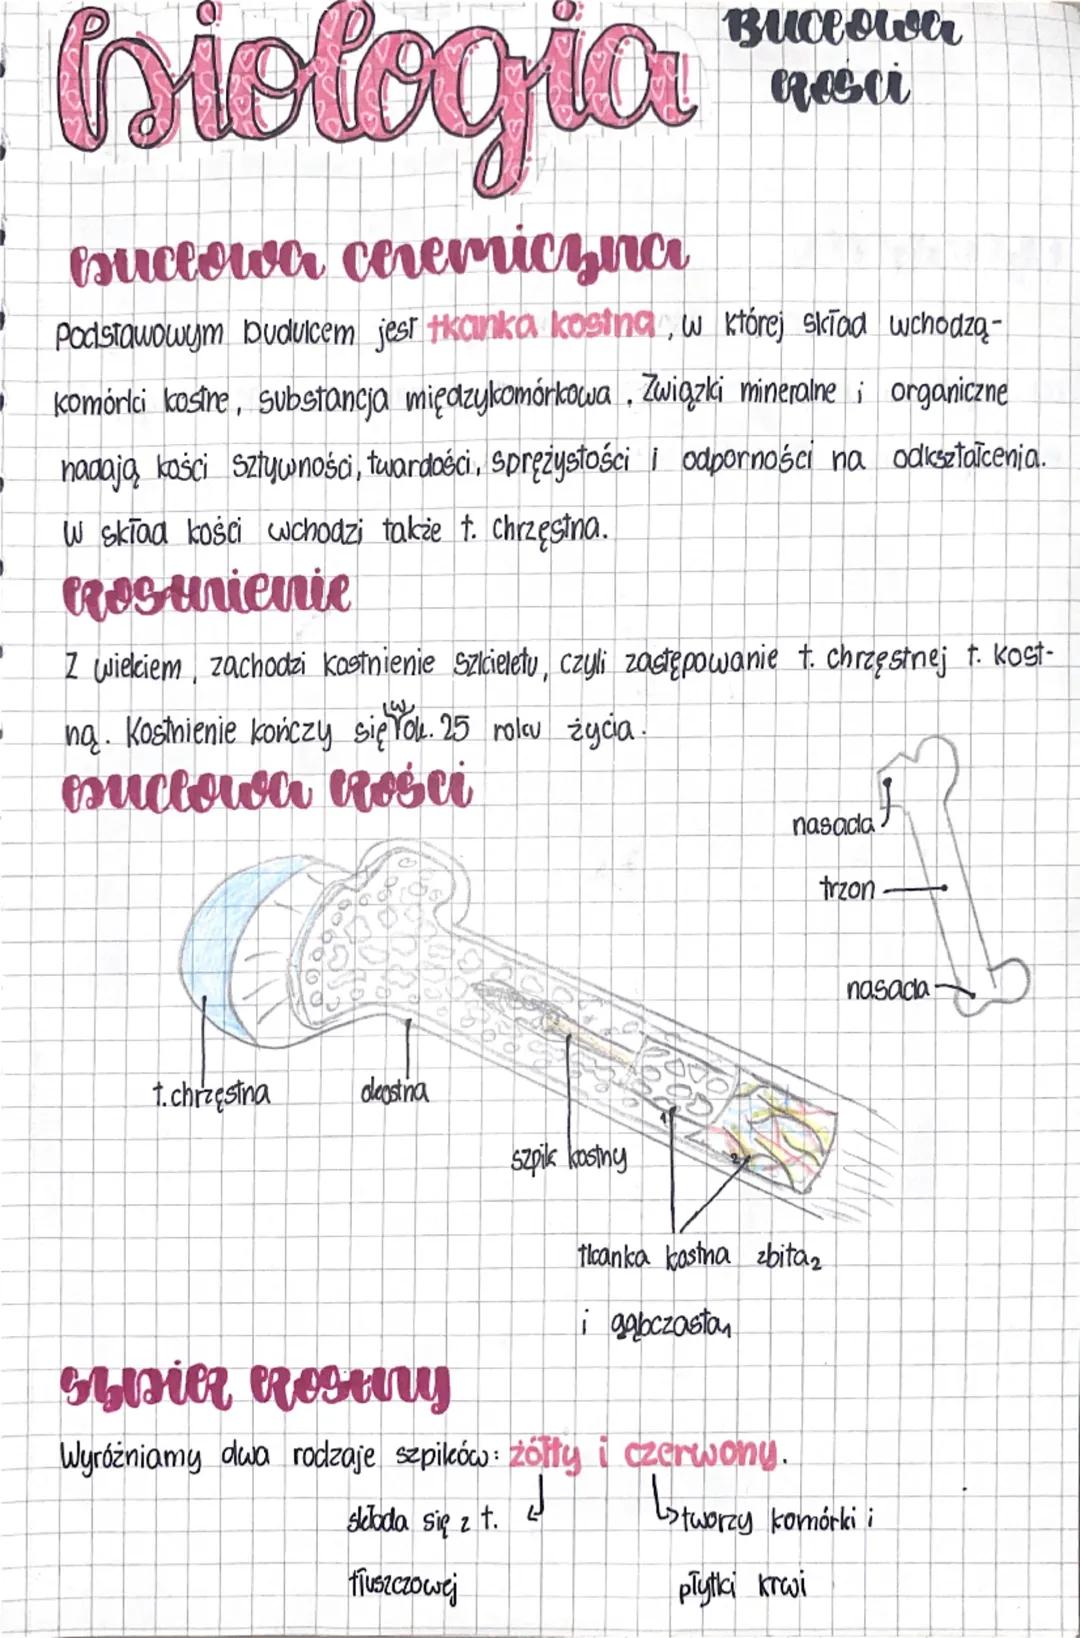 biologia
Budowa
kości
budowa chemiczna
Podstawowym budulcem jest tkanka kostna, w której skład wchodzą-
komórki kostne, substancja międzykomórkowa. Związki mineralne i organiczne
nadają kości sztywności, twardości, sprężystości i odporności na odkształcenia.
W skład kości wchodzi także t. chrzęstna.
kostnienie
Z wiekiem, zachodzi kostnienie szkieletu, czyli zastępowanie t. chrzęstnej t. kost-
ną. Kostnienie kończy się w ok. 25 roku życia.
budowa kości
nasada
trzon
nasada
t. chrzęstna
okostna
szpik kostny
1
2
tkanka kostna zbita2
i gąbczasta1
szpik kostny
Wyróżniamy dwa rodzaje szpików: żółty i czerwony.
składa się z t.
tworzy komórki i
tłuszczowej
płytki krwi